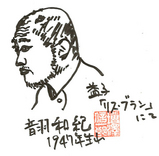 益子
「リス・ブラン」
にて
音羽和紀
1947年生